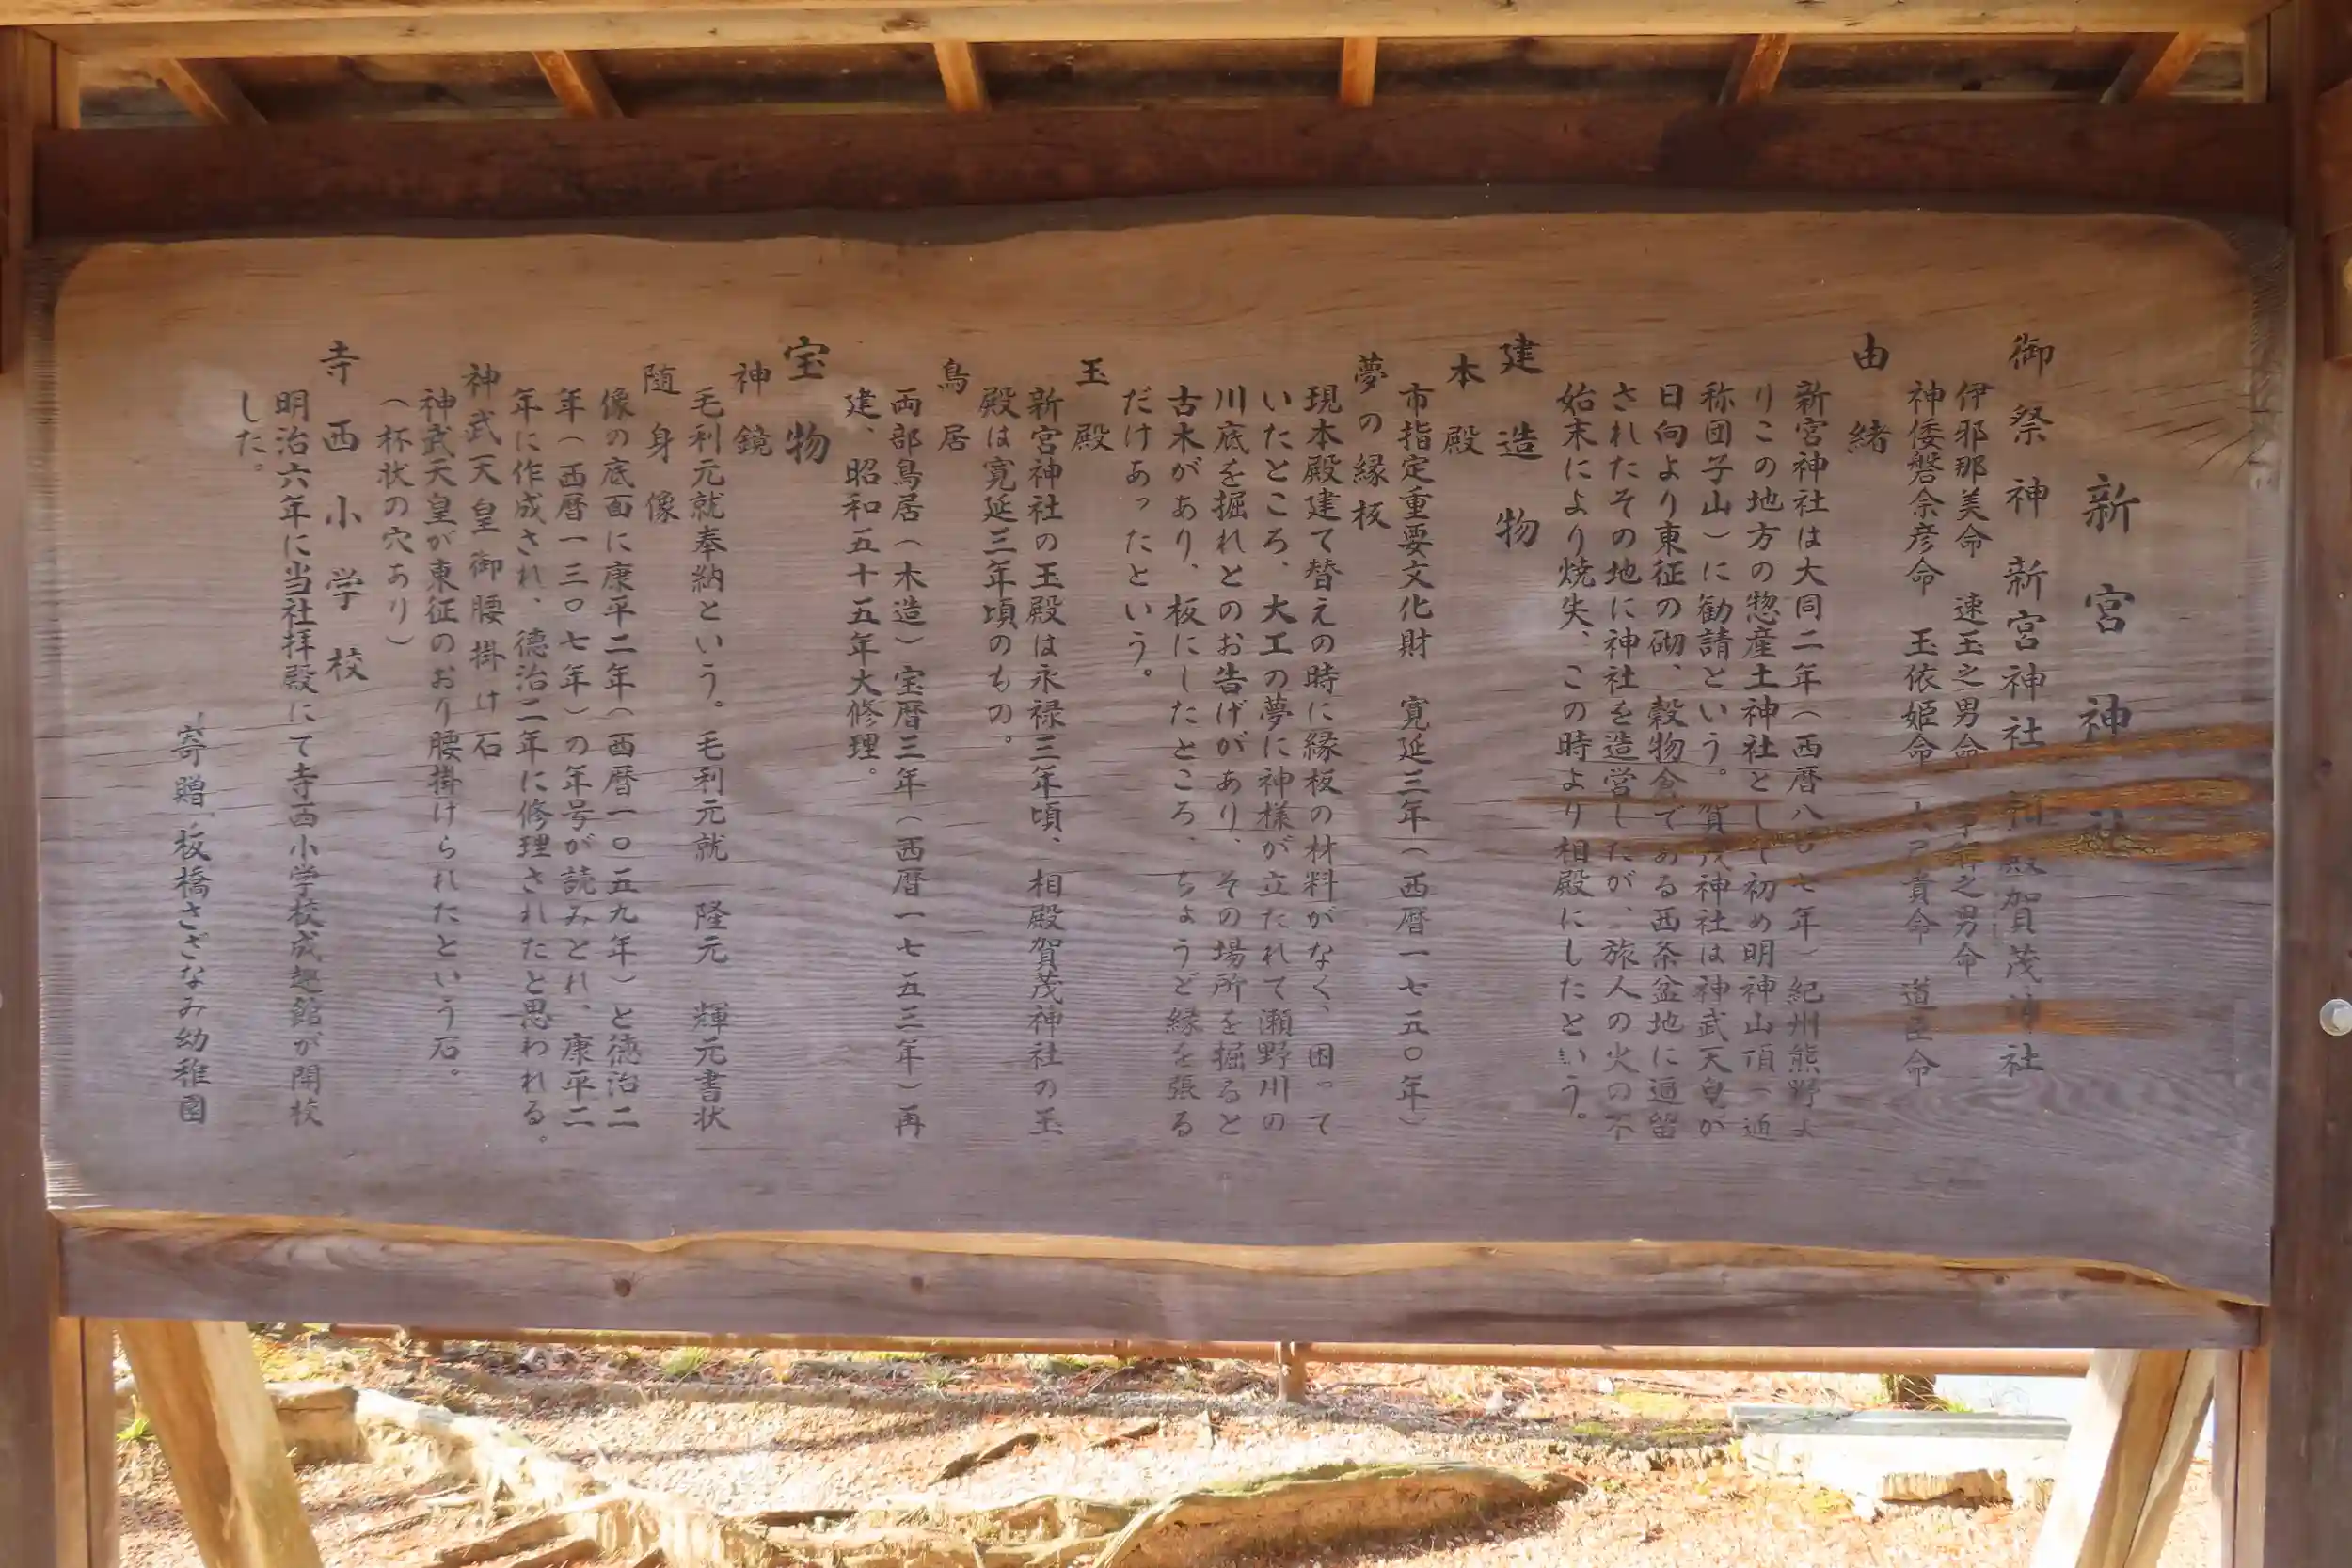 新宮神社
御祭神 新宮神社 相殿賀茂神社
伊邪那美命 速玉之男命 予解之男命
神倭磐余彦命 玉依姫命 大己貴命 道臣命
由緒
新宮神社は大同二年(西暦八〇七年)紀州熊野よ
りこの地方の惣産土神社として初め明神山頂(近
称団子山)に勧請という。賀茂神社は神武天皇が
日向より東征の砌、穀物倉である西条盆地に逗留
されたその地に神社を造営したが、旅人の火の不
始末により焼失、この時より相殿にしたという。
建造物
本殿
市指定重要文化財 寛延三年(西暦一七五〇年)
夢の縁板
現本殿建て替えの時に縁板の材料がなく、困って
いたところ、大工の夢に神様が立たれて瀬野川の
川底を掘れとのお告げがあり、その場所を掘ると
古木があり、板にしたところ、ちょうど縁を張る
だけあったという。
玉殿
新宮神社の玉殿は永禄三年頃、相殿賀茂神社の玉
殿は寛延三年頃のもの。
鳥居
両部鳥居(木造)宝暦三年(西暦一七五三年)再
建、昭和五十五年大修理。
宝物
神鏡
毛利元就奉納という。毛利元就 隆元 輝元書状
随身像
像の底面に康平二年(西暦一〇五九年)と徳治二
年(西暦一三〇七年)の年号が読みとれ、康平二
年に作成され、徳治二年に修理されたと思われる。
神武天皇御腰掛け石
神武天皇が東征のおり腰掛けられたという石。
(杯状の穴あり)
寺西小学校
明治六年に当社拝殿にて寺西小学校成趣館が開校
した。
寄贈 板橋さざなみ幼稚園